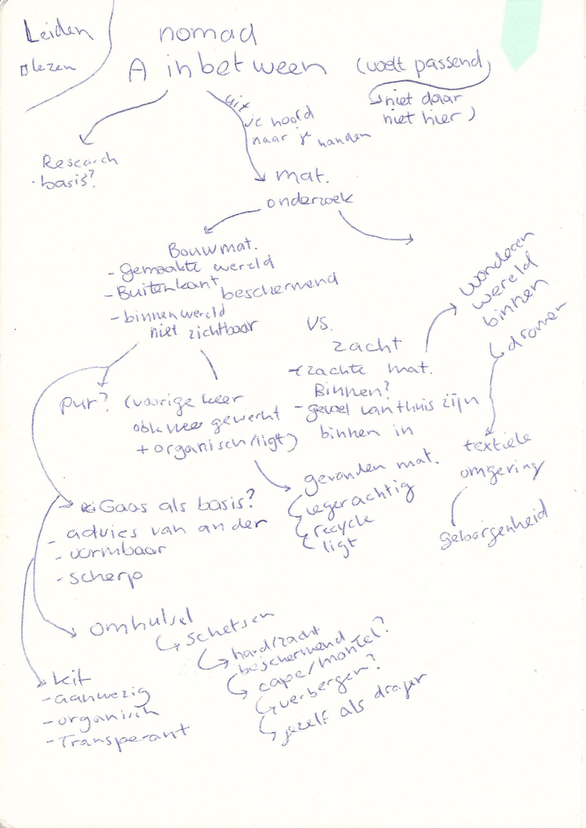 Leiden
lezen
nomad
A inbetween (voelt passend)
niet daar
niet hier)
uit
je hoofd
naar je handen
Research
- basis?
mat.
onderzoek
Bouwmat.
- Gemaakte wereld
- Buitenkant beschermend
- binnenwereld
niet zichtbaar
vs.
zacht
- (zachte mat.
Binnen?
- gevoel van thuis zijn
binnen in
wonderen
wereld
binnen
dromen
textiele
omgeving
geborgenheid
pur? (vorige keer
ook mee gewerkt
+ organisch/ligt)
gevonden mat.
legerachtig
recycle
ligt
Gaas als basis?
- advies van ander
- vormbaar
- scherp
omhulsel
schetsen
hard/zacht
beschermend
cape/mantel?
verbergen?
jezelf als drager
kit
- aanwezig
- organisch
- Transperant